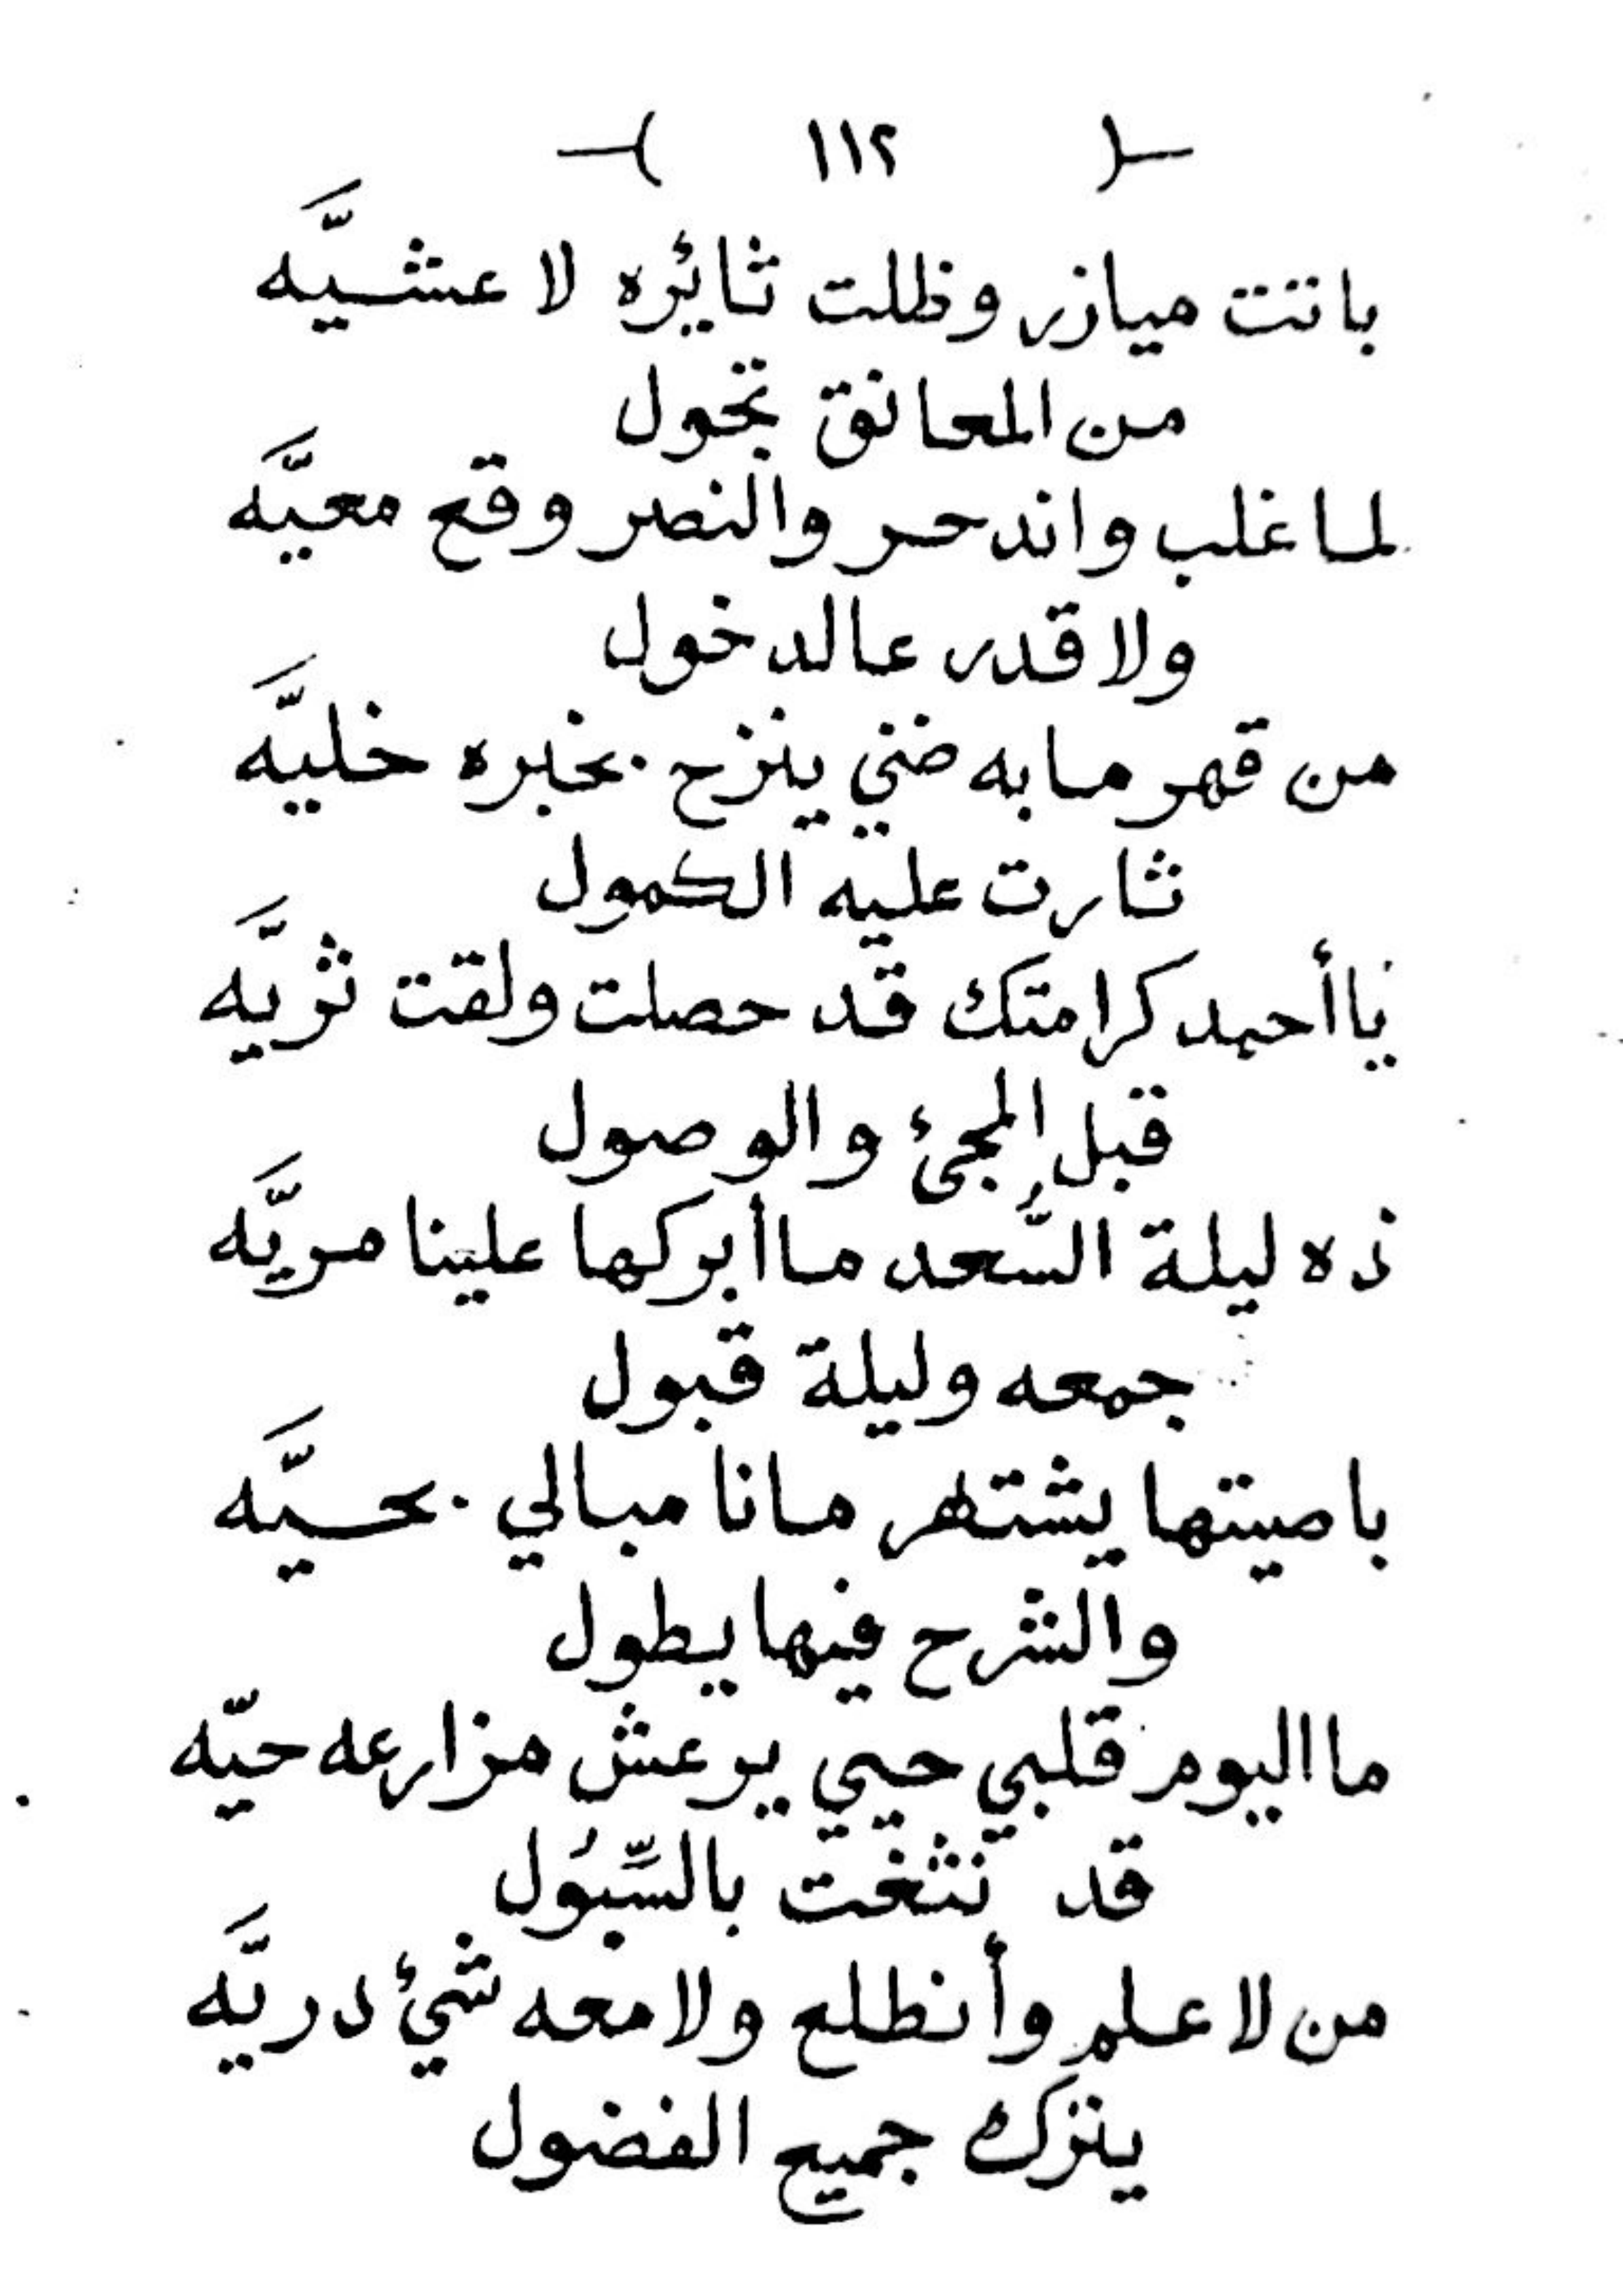 -( ١١٢ )-
باتت ميازر وظلت ثائره لا عشيَّه
من المعانق تجول
لما غلب واندحر والنصر وقع معيَّه
ولا قدر عالدخول
من قهر مابه ضني ينزح بخبره خليَّه
ثارت عليه الكمول
ياأحمد كرامتك قد حصلت ولقت ثريَّه
قبل المجئ والوصول
ذه ليلة السَّعد ماأبركها علينا مريَّه
جمعه وليلة قبول
باصيتها يشتهر مانا مبالي بحسيَّه
والشرح فيها يطول
مااليوم قلبي حيي يرعش مزارعه حيّه
قد نثغت بالسِّبُول
من لا علم وأنطلع ولامعه شيئ دريَّه
ينزك جميع الفضول